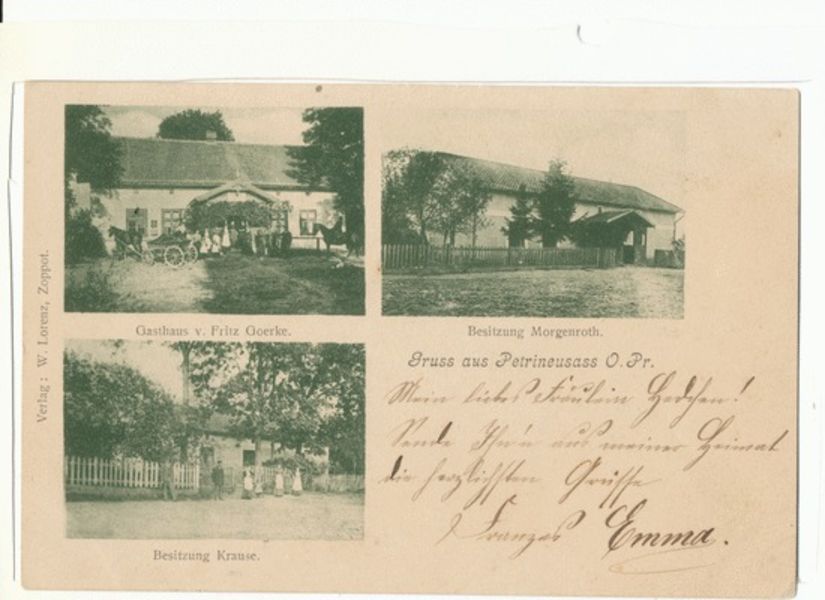 Verlag: W. Lorenz, Zoppot.
Gasthaus v. Fritz Goerke.
Besitzung Morgenroth.
Besitzung Krause.
Gruss aus Petrineusass O.Pr.
Mein liebes Fräulein Hedchen!
Sende Ihn'n aus meiner Heimat
die herzlichsten Grüsse
Emma.